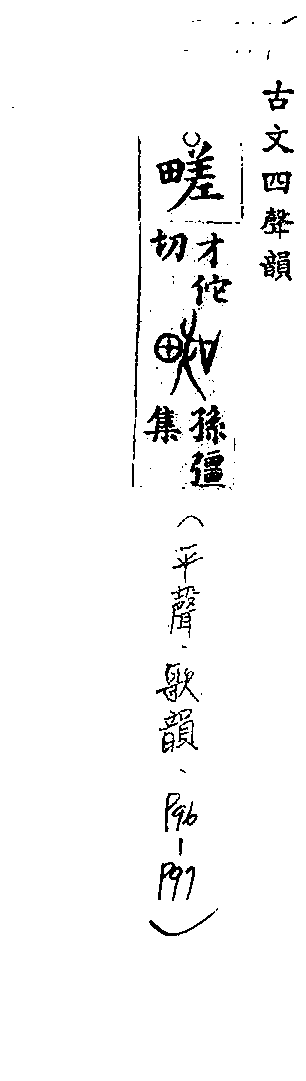 古文四聲韻
䁟才佗切
孫彊集
（平聲、歌韻、P96-P97）